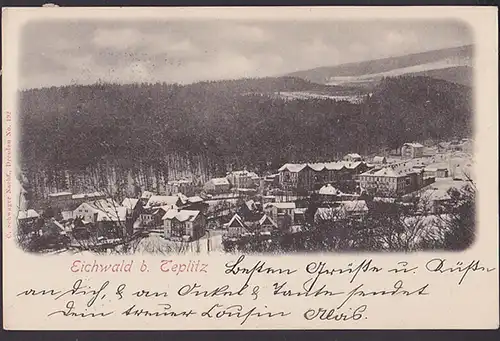 C. Schwager Nachf., Dresden No. 192
Eichwald b. Teplitz
Besten Grüße u. Küße
an Dich, & an Onkel & Tante sendet
Dein treuer Cousin Alois.